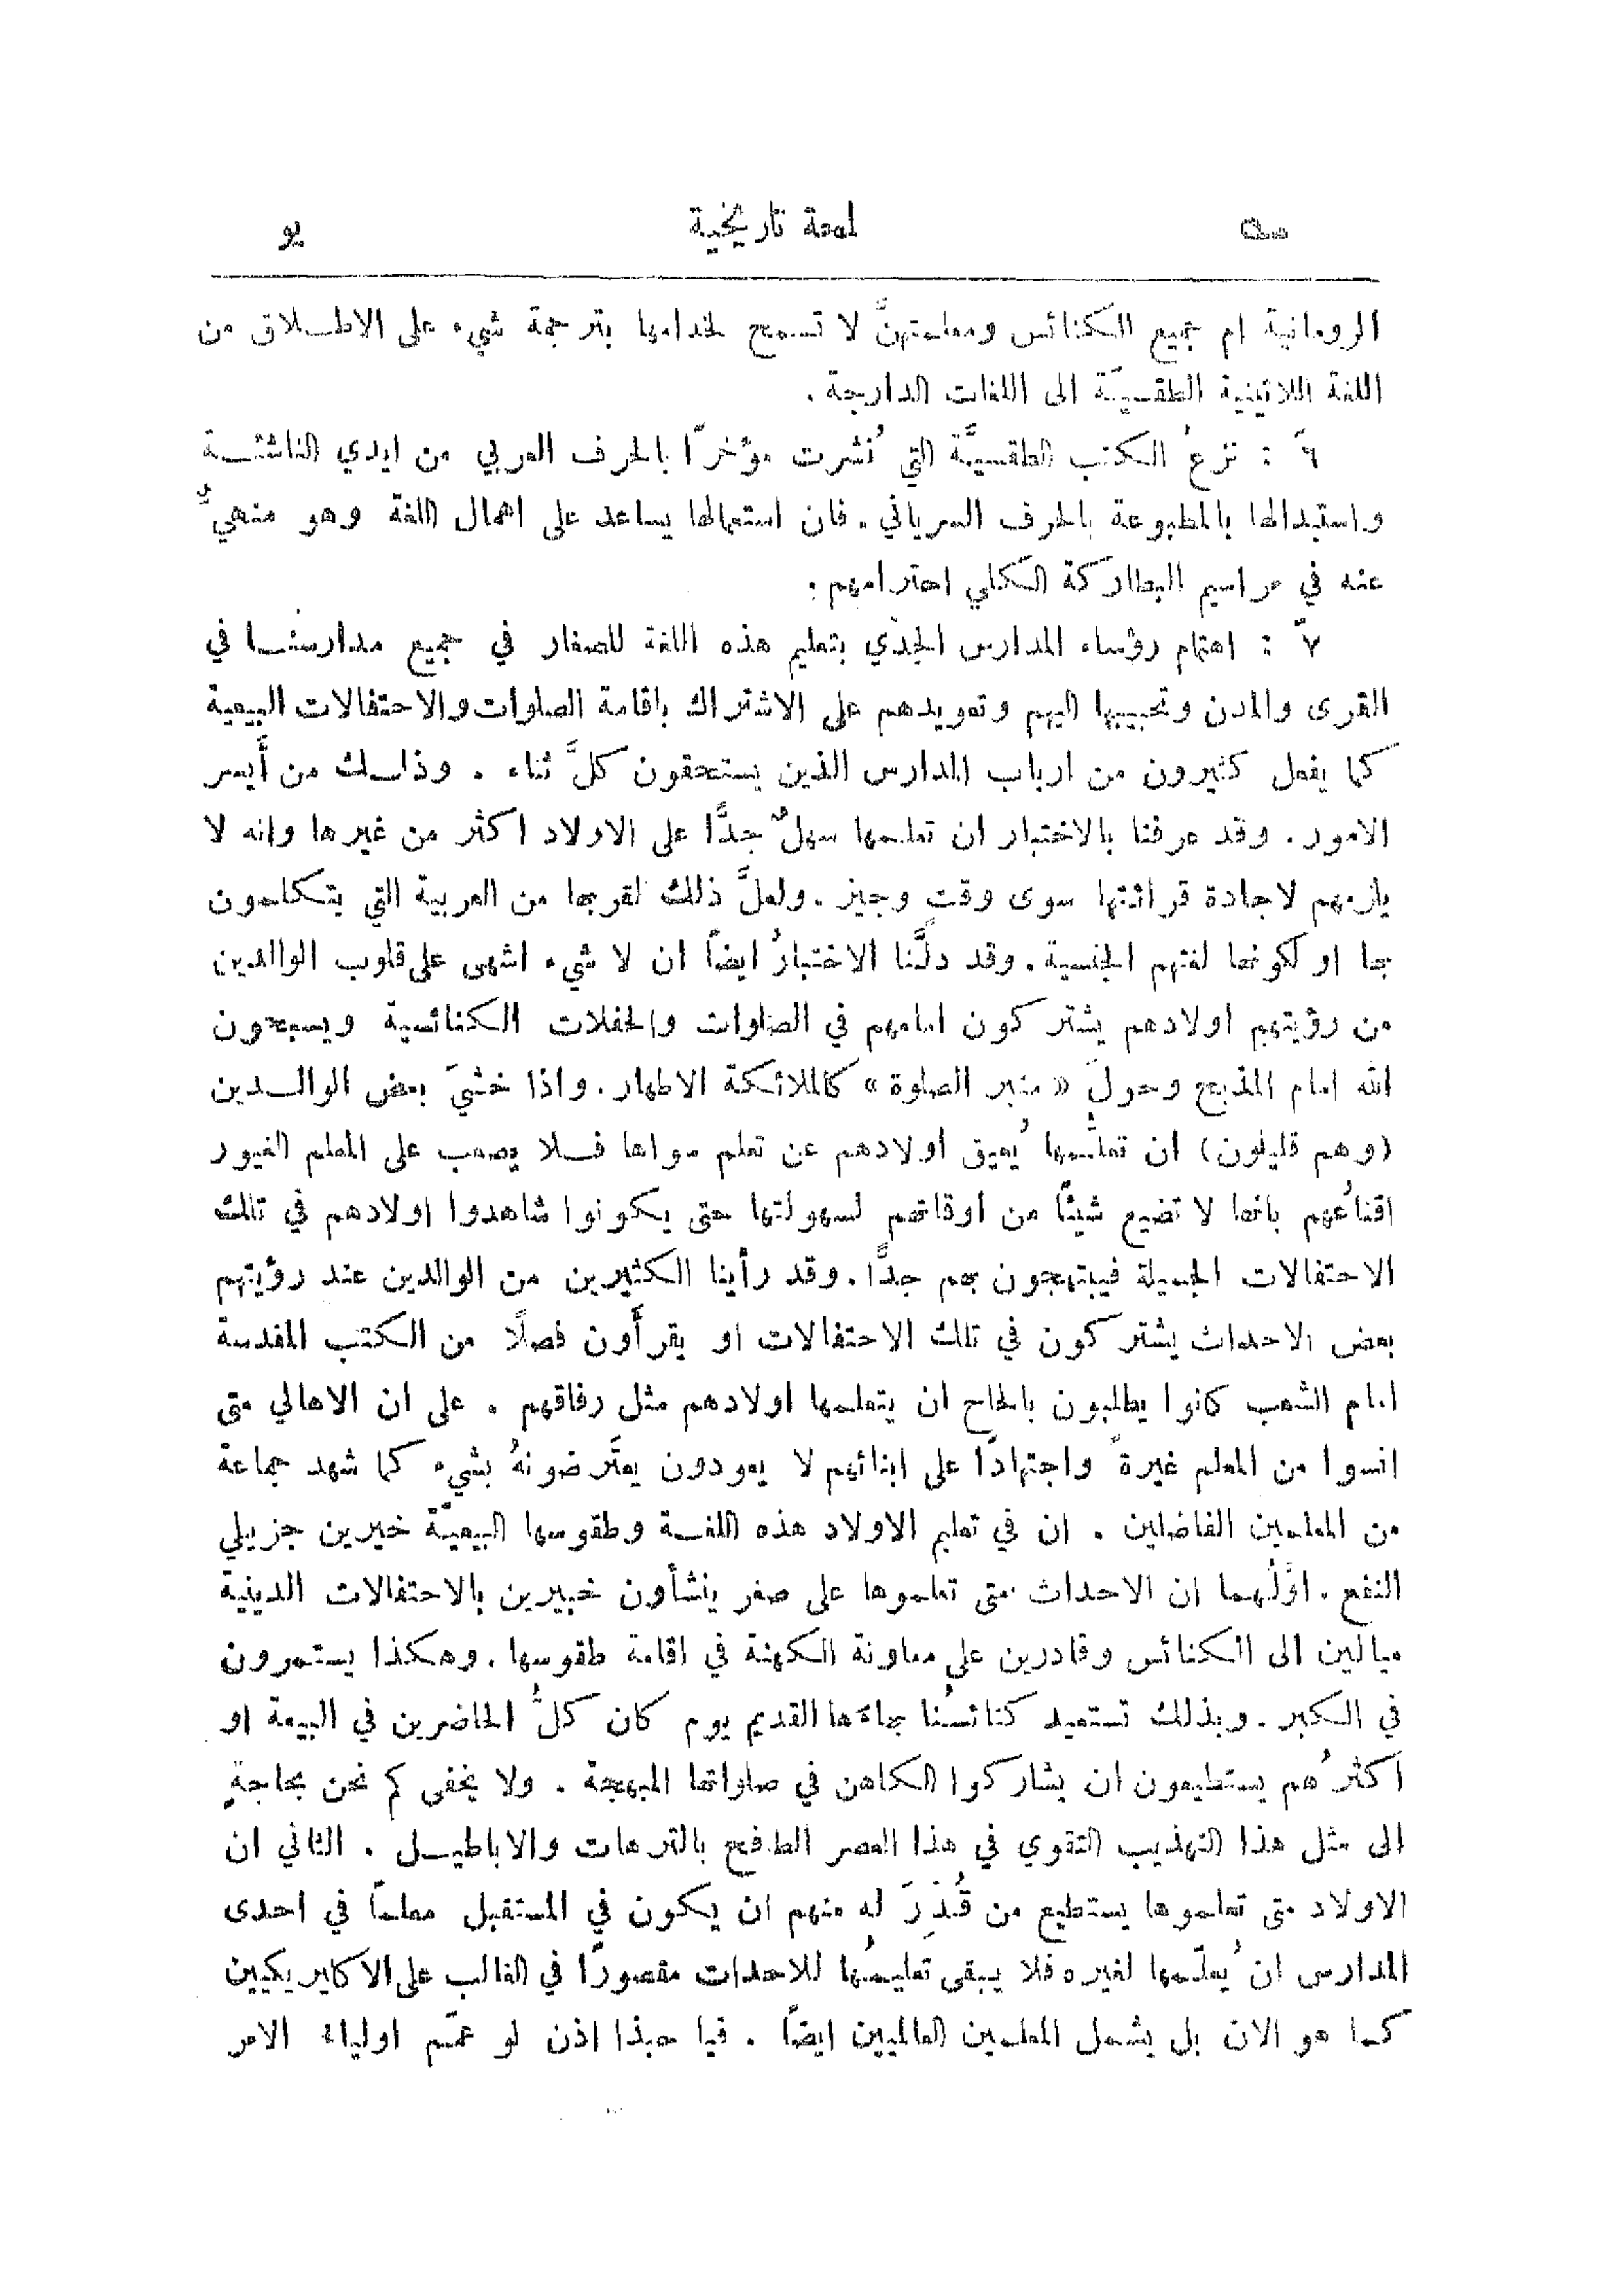 ܝܘ لمعة تاريخية يو
الرومانية ام جميع الكنائس ومعلمتهنَّ لا تسمح لخدامها بترجمة شيء على الاطلاق من
اللغة اللاتينية الطقسيَّة الى اللغات الدارجة .
٦ً : نزعُ الكتب الطقسيَّة التي نُشرت مؤخرًا بالحرف العربي من ايدي الناشئة
واستبدالها بالمطبوعة بالحرف السرياني . فان استعمالها يساعد على اهمال اللغة وهو منهيٌّ
عنه في مراسيم البطاركة الكلي احترامهم .
٧ً : اهتمام رؤساء المدارس الجدّي بتعليم هذه اللغة للصغار في جميع مدارسنا في
القرى والمدن وتحبيبها اليهم وتعويدهم على الاشتراك باقامة الصلوات والاحتفالات البيعية
كما يفعل كثيرون من ارباب المدارس الذين يستحقون كلَّ ثناء . وذلك من أَيسر
الامور . وقد عرفنا بالاختبار ان تعلمها سهلٌ جدًّا على الاولاد اكثر من غيرها وانه لا
يلزمهم لاجادة قرائتها سوى وقتٍ وجيز . ولعلَّ ذلك لقربها من العربية التي يتكلمون
بها او لكونها لغتهم الجنسية . وقد دلَّنا الاختبارُ ايضًا ان لا شيء اشهى على قلوب الوالدين
من رؤيتهم اولادهم يشتركون امامهم في الصلوات والحفلات الكنائسية ويسبحون
الله امام المذبح وحولَ « منبر الصلوة » كالملائكة الاطهار . واذا خشيَ بعض الوالدين
(وهم قليلون) ان تعلُّمها يُعيق اولادهم عن تعلم سواها فلا يصعب على المعلم الغيور
اقناعُهم بانها لا تضيع شيئًا من اوقاتهم لسهولتها حتى يكونوا شاهدوا اولادهم في تلك
الاحتفالات الجميلة فيبتهجون بهم جدًّا . وقد رأينا الكثيرين من الوالدين عند رؤيتهم
بعض الاحداث يشتركون في تلك الاحتفالات او يقرأَون فصلًا من الكتب المقدسة
امام الشعب كانوا يطلبون بالحاح ان يتعلمها اولادهم مثل رفاقهم . على ان الاهالي متى
انسوا من المعلم غيرةً واجتهادًا على ابنائهم لا يعودون يعتَرضونهُ بشيء كما شهد جماعة
من المعلمين الفاضلين . ان في تعليم الاولاد هذه اللغة وطقوسها البيعيَّة خيرين جزيلي
النفع . اوَّلُهما ان الاحداث متى تعلموها على صغر ينشأون خبيرين بالاحتفالات الدينية
ميالين الى الكنائس وقادرين على معاونة الكهنة في اقامة طقوسها . وهكذا يستمرون
في الكبر . وبذلك تستعيد كنائسُنا بهاءَها القديم يوم كان كلُّ الحاضرين في البيعة او
اكثرُهم يستطيعون ان يشاركوا الكاهن في صلواتها المبهجة . ولا يخفى كم نحن بحاجةٍ
الى مثل هذا التهذيب التقوي في هذا العصر الطافح بالترهات والاباطيل . الثاني ان
الاولاد متى تعلموها يستطيع من قُدِّرَ له منهم ان يكون في المستقبل معلمًا في احدى
المدارس ان يُعلّمها لغيره فلا يبقى تعليمُها للاحداث مقصورًا في الغالب على الاكليريكيين
كما هو الان بل يشمل المعلمين العالميين ايضًا . فيا حبذا اذن لو عمَّم اولياء الامر